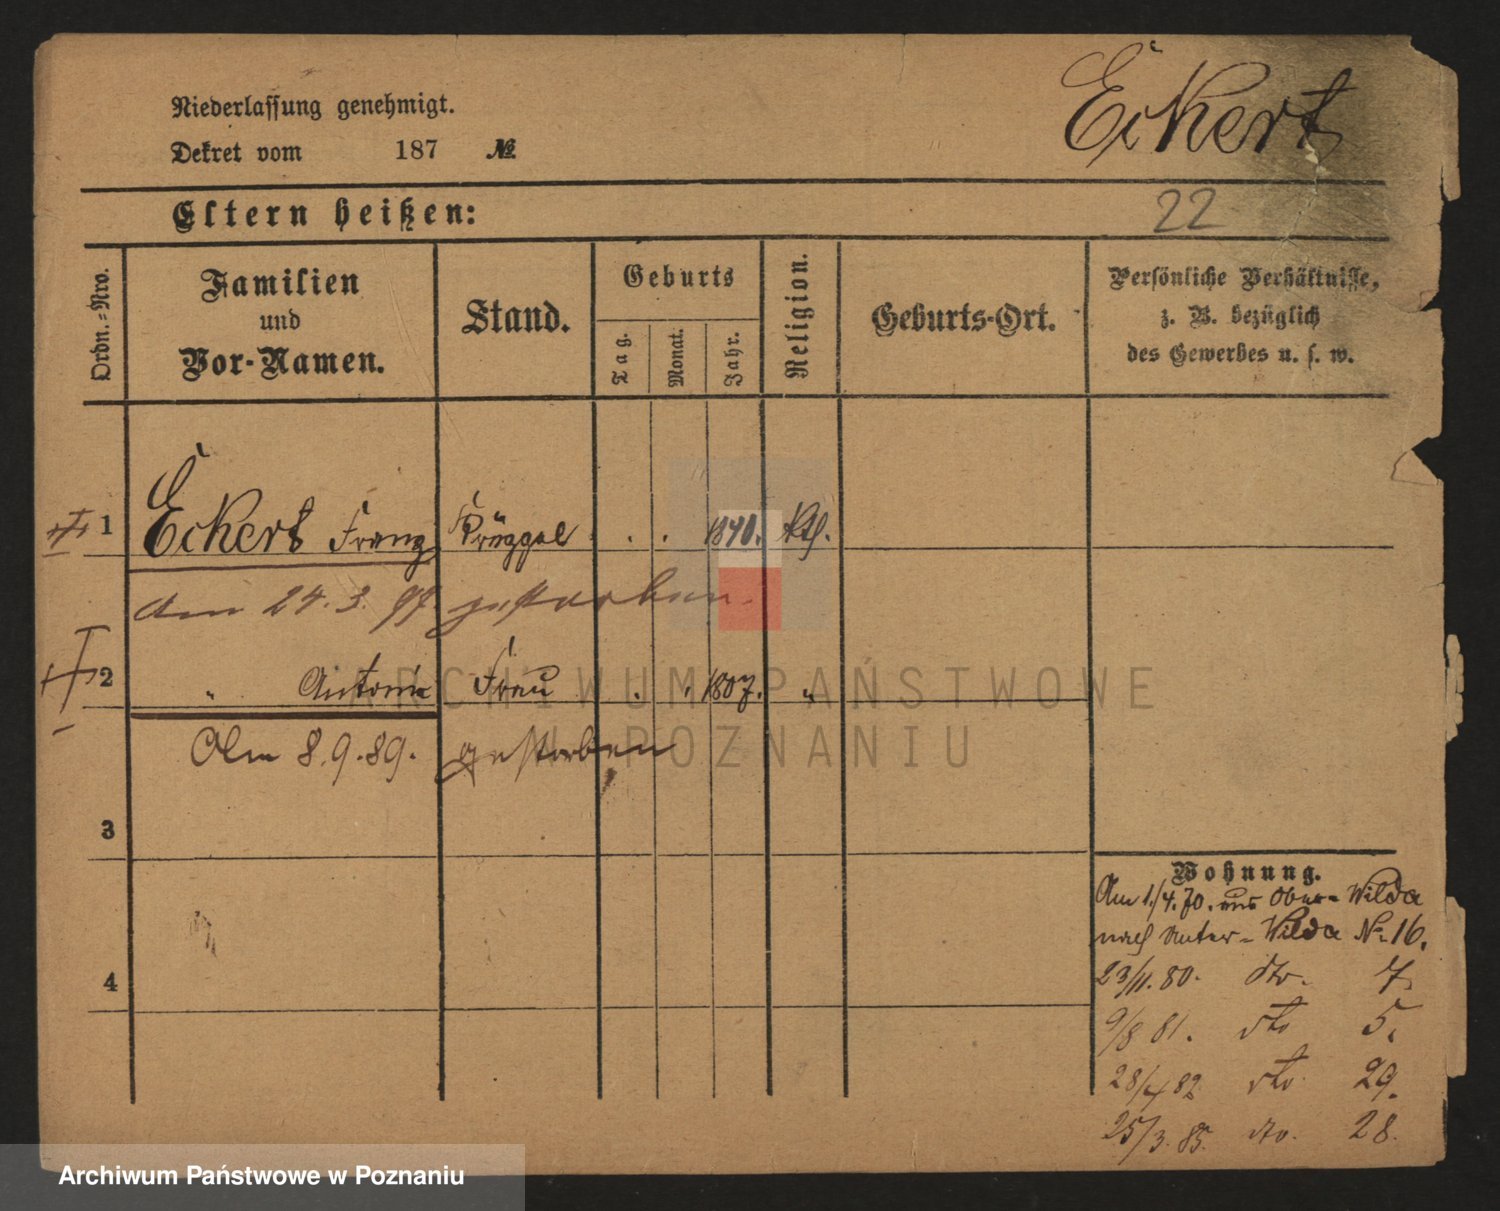 Eckert
Niederlassung genehmigt.
Dekret vom 187 №
22
Eltern heißen:
Ordn.-Nro.
Familien
und
Vor-Namen.
Stand.
Geburts
Tag.
Monat.
Jahr.
Religion.
Geburts-Ort.
Persönliche Verhältnisse,
z. B. bezüglich
des Gewerbes u. s. w.
1 Eckert Franz 1840. Kth.
Am 24. 3. 97. gestorben.
2 " Antonie Frau 1807. "
Am 8.9.89. gestorben
3
4
Wohnung.
Am 1./4.70. aus Ober-Wilda
nach Unter-Wilda No 16.
23/11.80. dto. 7.
9/8 81. dto 5.
28/4 82 dto. 29.
25/3.85. dto. 28.
ARCHIWUM PAŃSTWOWE
W POZNANIU
Archiwum Państwowe w Poznaniu